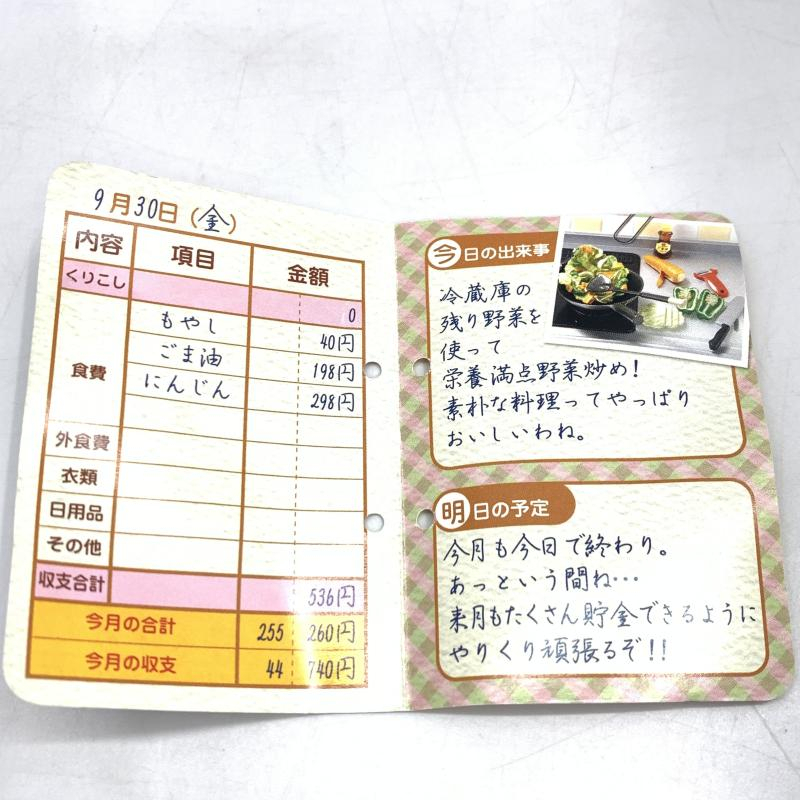 9月30日(金)
内容 項目 金額
くりこし 0
もやし 40円
食費 ごま油 198円
にんじん 298円
外食費
衣類
日用品
その他
収支合計 536円
今月の合計 255 260円
今月の収支 44 740円
今日の出来事
冷蔵庫の
残り野菜を
使って
栄養満点野菜炒め!
素朴な料理ってやっぱり
おいしいわね。
明日の予定
今月も今日で終わり。
あっという間ね…
来月もたくさん貯金できるように
やりくり頑張るぞ!!